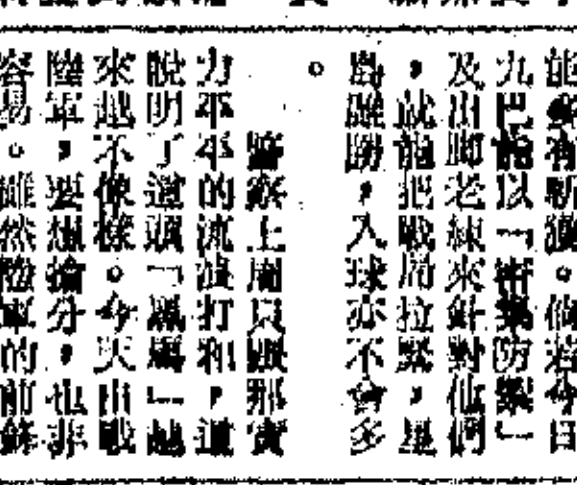 能夠有斬獲。倘若今日
九巴能以「密集防禦」
及出脚老練來針對他們
，就能把戰局拉緊，星
島雖勝，入球亦不會多
。
警察上周只跟那實
力平平的流浪打和，這
說明了這頭「黑馬」越
來越不像樣。今天出戰
陸軍，要想搶分，也非
容易。雖然陸軍的前鋒